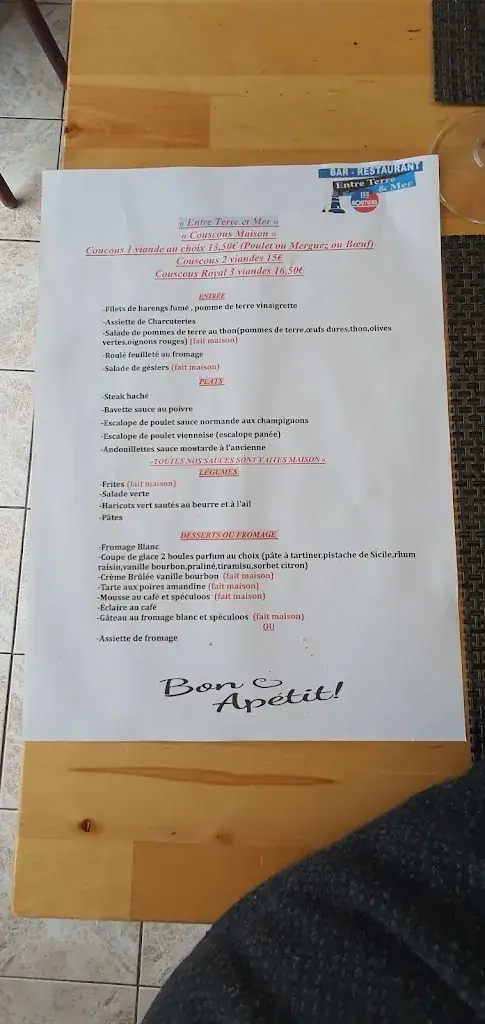 BAR - RESTAURANT
Entre Terre
& Mer
LES
MOUTIERS
« Entre Terre et Mer »
« Couscous Maison »
Coucous 1 viande au choix 13,50€ (Poulet ou Merguez ou Bœuf)
Couscous 2 viandes 15€
Couscous Royal 3 viandes 16,50€
ENTRÉE
-Filets de harengs fumé , pomme de terre vinaigrette
-Assiette de Charcuteries
-Salade de pommes de terre au thon(pommes de terre,œufs dures,thon,olives
vertes,oignons rouges) (fait maison)
-Roulé feuilleté au fromage
-Salade de gésiers (fait maison)
PLATS
-Steak haché
-Bavette sauce au poivre
-Escalope de poulet sauce normande aux champignons
-Escalope de poulet viennoise (escalope panée)
-Andouillettes sauce moutarde à l'ancienne
«TOUTES NOS SAUCES SONT FAITES MAISON »
LÉGUMES
-Frites (fait maison)
-Salade verte
-Haricots vert sautés au beurre et à l'ail
-Pâtes
DESSERTS OU FROMAGE
-Fromage Blanc
-Coupe de glace 2 boules parfum au choix (pâte à tartiner,pistache de Sicile,rhum
raisin,vanille bourbon,praliné,tiramisu,sorbet citron)
-Crème Brûlée vanille bourbon (fait maison)
-Tarte aux poires amandine (fait maison)
-Mousse au café et spéculoos (fait maison)
-Éclaire au café
-Gâteau au fromage blanc et spéculoos (fait maison)
OU
-Assiette de fromage
Bon
Apétit!